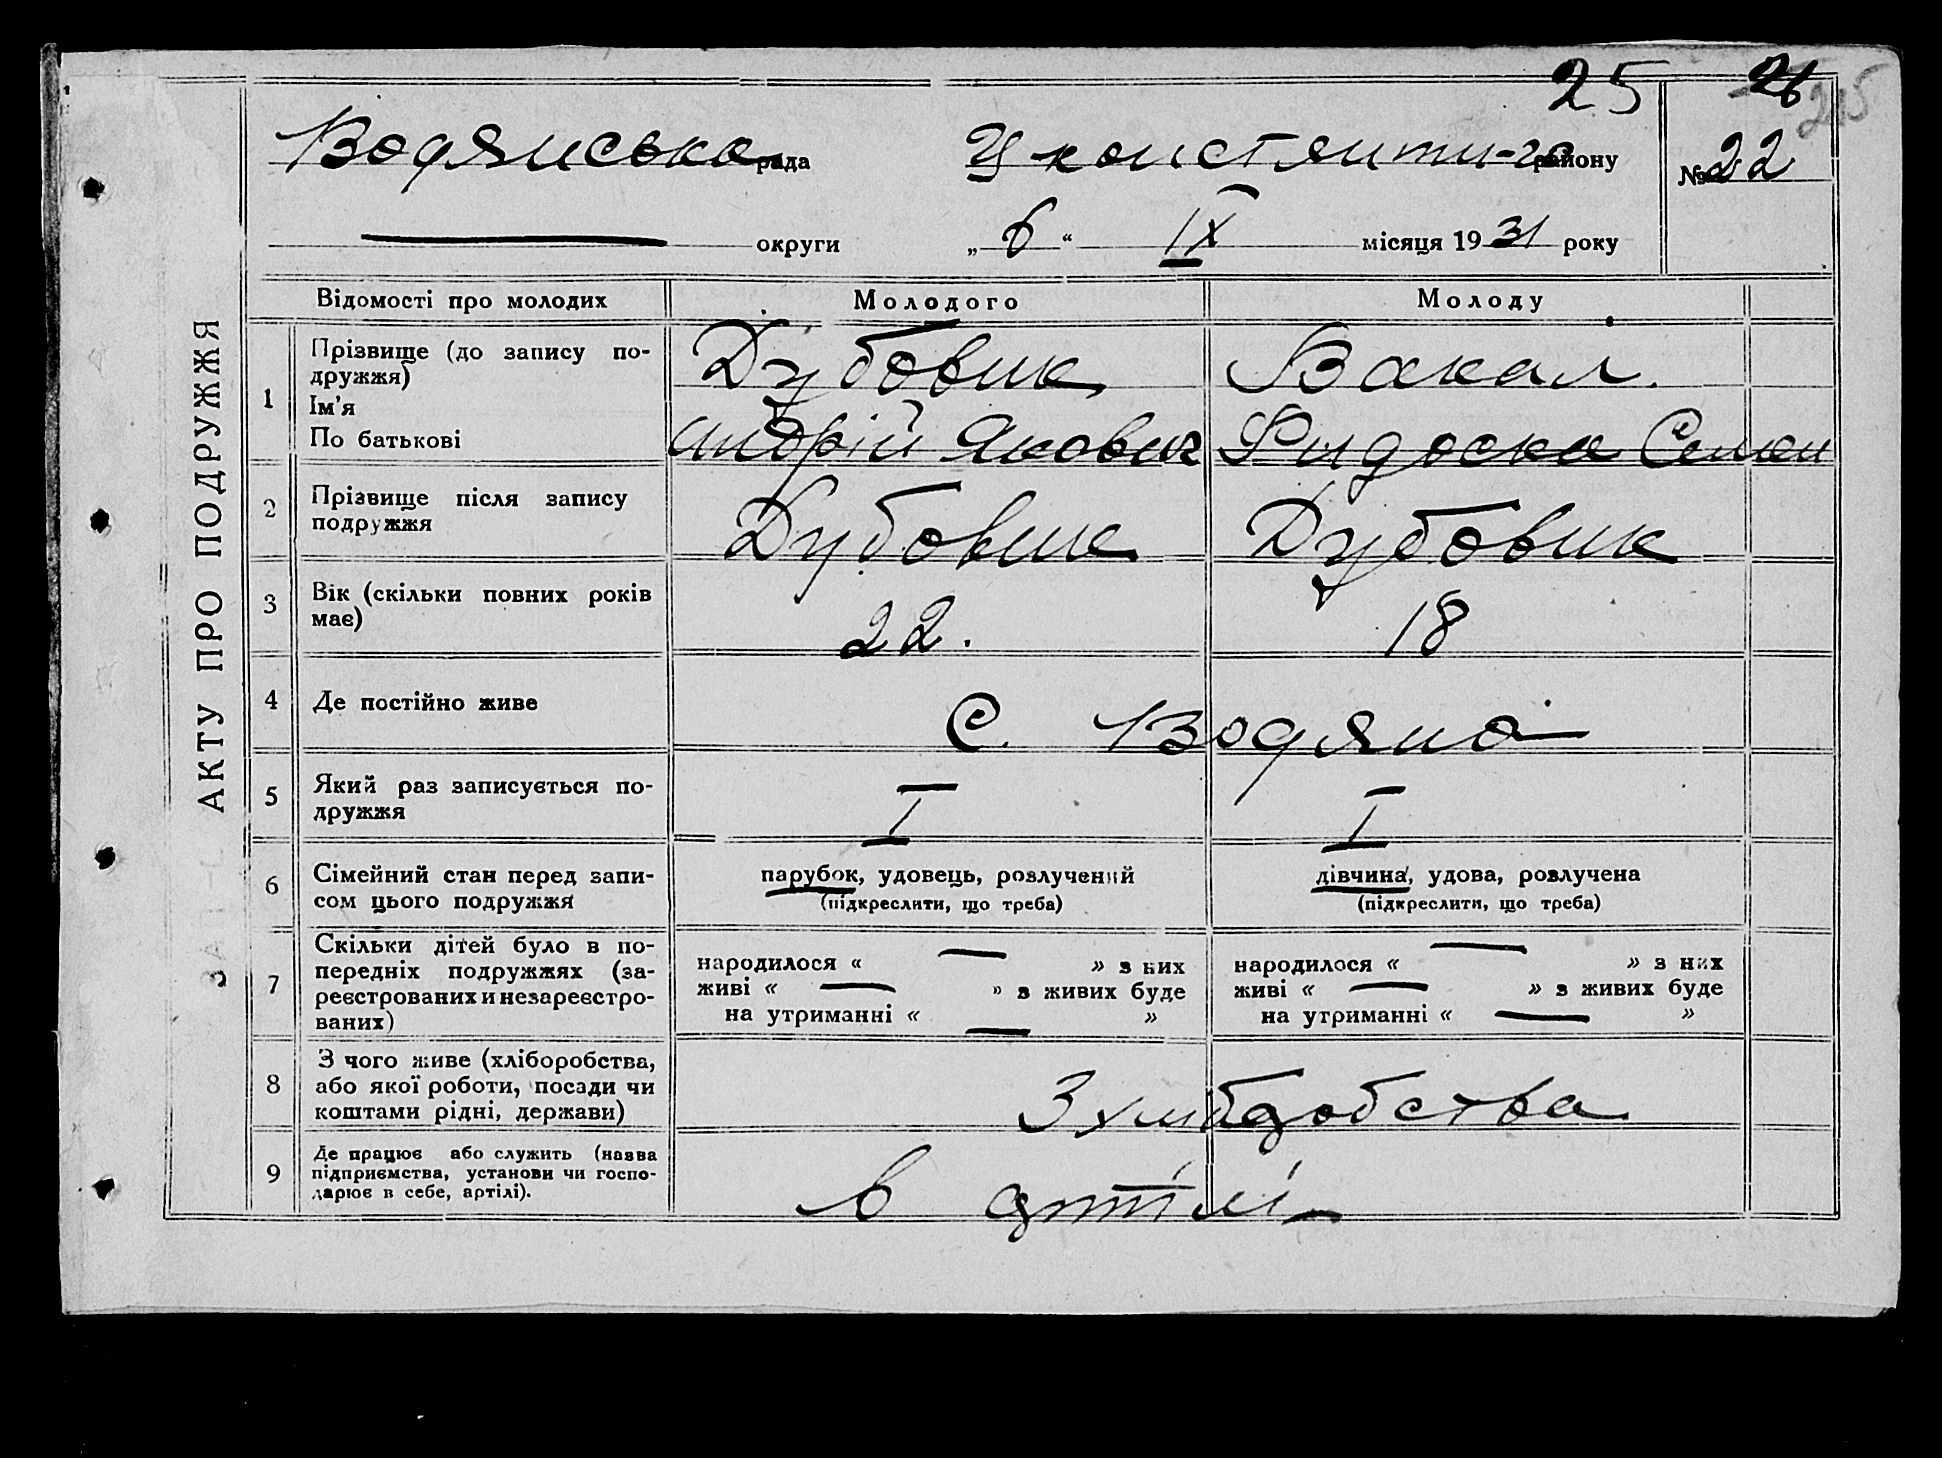 25 26 25
Водянська рада У констянти-го району № 22
округи „ 6 “ IX місяця 1931 року
АКТУ ПРО ПОДРУЖЖЯ
Відомості про молодих Молодого Молоду
1 Прізвище (до запису по-
дружжя) Дубовик Вакал.
Ім'я
По батькові Андрій Якович Фидоска Семен
2 Прізвище після запису
подружжя Дубовик Дубовик
3 Вік (скільки повних років
має) 22. 18
4 Де постійно живе С. Водяна
5 Який раз записується по-
дружжя I I
6 Сімейний стан перед запи-
сом цього подружжя
парубок, удовець, розлучений
(підкреслити, що треба)
дівчина, удова, розлучена
(підкреслити, що треба)
7 Скільки дітей було в по-
передніх подружжях (за-
реєстрованих и незареєстро-
ваних)
народилося « — » з них
живі « — » з живих буде
на утриманні « — »
народилося « — » з них
живі « — » з живих буде
на утриманні « — »
8 З чого живе (хліборобства,
або якої роботи, посади чи
коштами рідні, держави)
З хлібробства
9 Де працює або служить (назва
підприємства, установи чи госпо-
дарює в себе, артілі).
в артілі